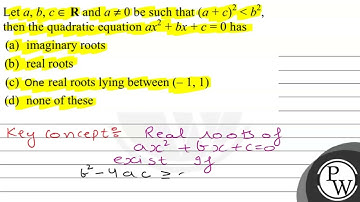 Let a, b, c ∈ R and a ≠ 0 be such that (a + c)² < b²,
then the quadratic equation ax² + bx + c = 0 has
(a) imaginary roots
(b) real roots
(c) One real roots lying between (– 1, 1)
(d) none of these
Key concept:- Real roots of
ax² + bx + c = 0
exist if
b² - 4ac ≥ -
PW